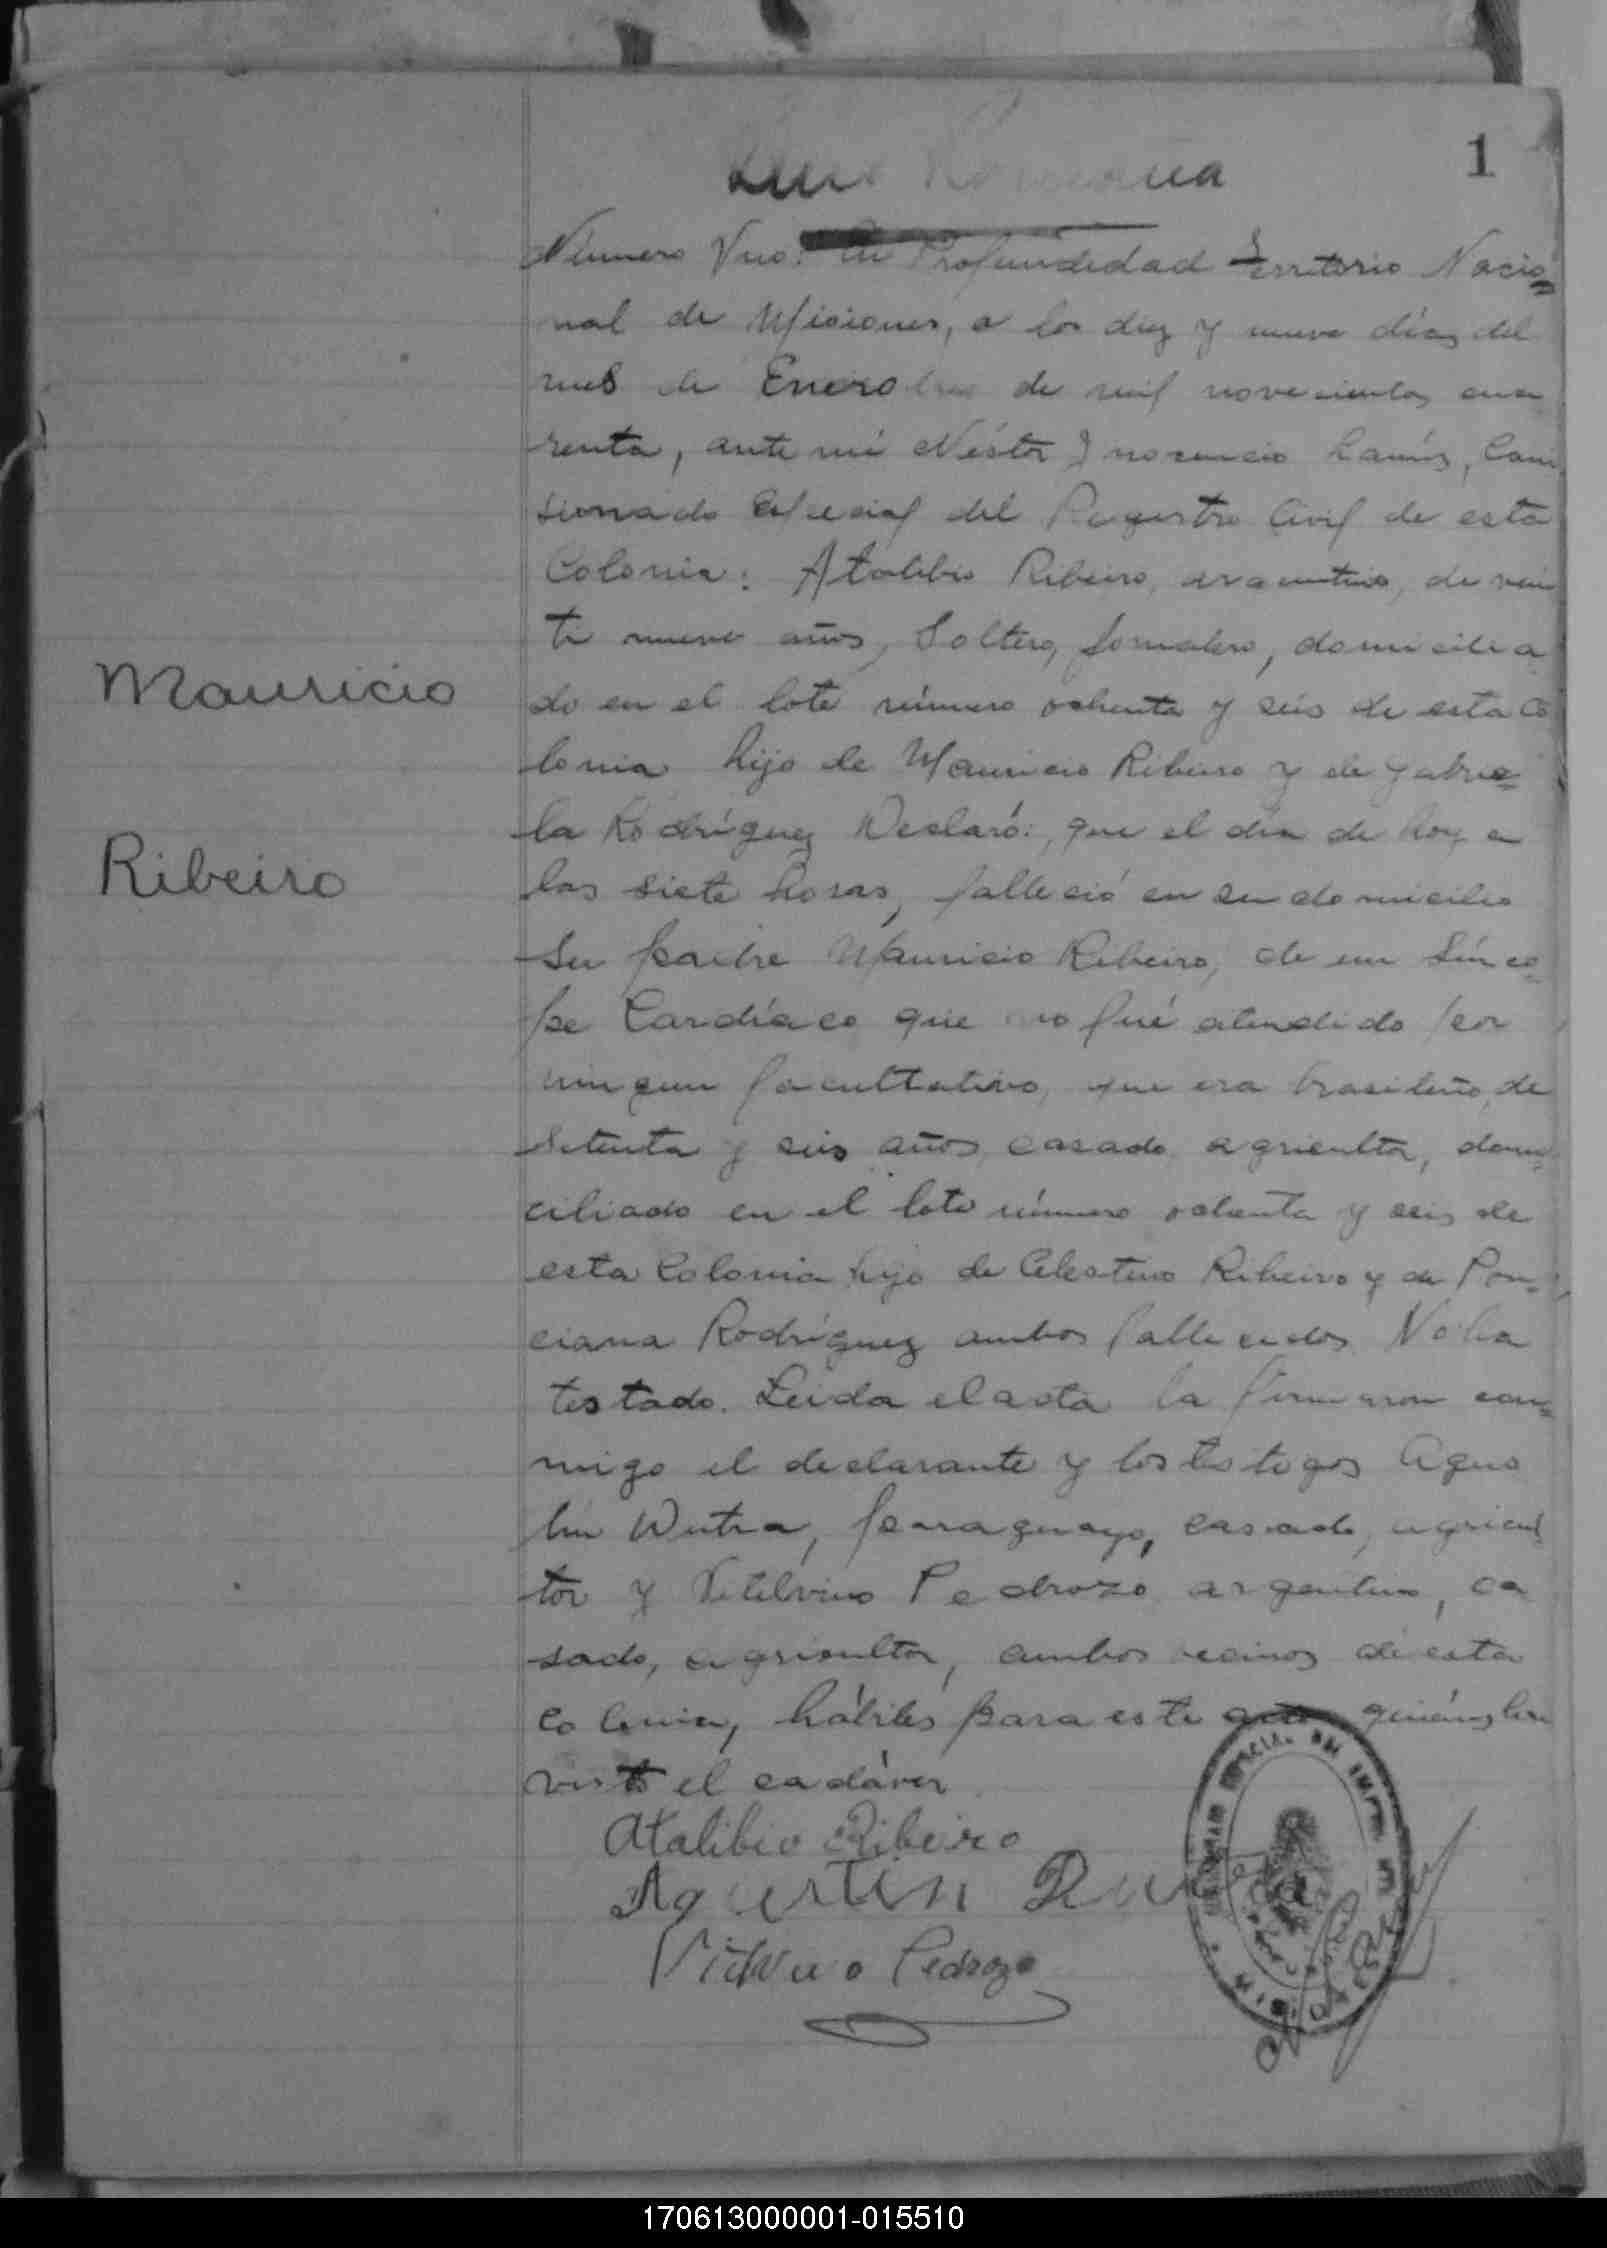 1
Número Uno. En Profundidad Territorio Nacio=
nal de Misiones, a los diez y nueve días del
mes de Enero de mil novecientos cua
renta, ante mi Néstor Inocencio Lanús, Comi
sionado Especial del Registro Civil de esta
Colonia: Atalibio Ribeiro, argentino, de vein
ti nueve años, Soltero, jornalero, domicilia
do en el lote número ochenta y seis de esta Co
lonia hijo de Mauricio Ribeiro y de Gabrie=
la Rodríguez Declaró: que el día de hoy a
las siete horas, falleció en su domicilio
Su padre Mauricio Ribeiro, de un Sínco=
pe Cardíaco que no fué atendido por
ningun facultativo, que era brasileño, de
Setenta y seis años casado agricultor, domi=
ciliado en el lote número ochenta y seis de
esta Colonia hijo de Celestino Ribeiro y de Pon=
ciana Rodríguez ambos fallecidos No ha
testado. Leida el acta la firmaron con=
migo el declarante y los testigos Agus
tin Dutra, paraguayo, casado, agricul
tor y Vitelvino Pedrozo argentino, ca
sado, agricultor, ambos vecinos de esta
colonia, hábiles para este acto quiénes han
visto el cadáver
Mauricio
Ribeiro
Atalibio Ribeiro
Agustin
Pedrozo
170613000001-015510